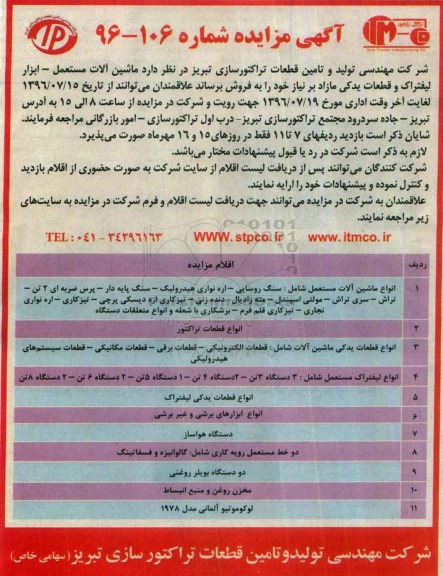 آگهی مزایده شماره ۱۰۶-۹۶
شرکت مهندسی تولید و تامین قطعات تراکتورسازی تبریز در نظر دارد ماشین آلات مستعمل - ابزار
لیفتراک و قطعات یدکی مازاد بر نیاز خود را به فروش برساند علاقمندان می‌توانند از تاریخ ۱۳۹۶/۰۷/۱۵
لغایت آخر وقت اداری مورخ ۱۳۹۶/۰۷/۱۹ جهت رویت و شرکت در مزایده از ساعت ۸ الی ۱۵ به آدرس
تبریز - جاده سردرود مجتمع تراکتورسازی تبریز- درب اول تراکتورسازی - امور بازرگانی مراجعه فرمایند.
شایان ذکر است بازدید ردیفهای ۷ تا ۱۱ فقط در روزهای ۱۵ و ۱۶ مهرماه صورت می‌پذیرد.
لازم به ذکر است شرکت در رد یا قبول پیشنهادات مختار می‌باشد.
شرکت کنندگان می‌توانند پس از دریافت لیست اقلام از سایت شرکت به صورت حضوری از اقلام بازدید
و کنترل نموده و پیشنهادات خود را ارایه نمایند.
علاقمندان به شرکت در مزایده می‌توانند جهت دریافت لیست اقلام و فرم شرکت در مزایده به سایت‌های
زیر مراجعه نمایند.
www.itmco.ir WWW.stpco.ir TEL : ۰۴۱ - ۳۴۲۹۶۱۶۳
ردیف اقلام مزایده
۱ انواع ماشین آلات مستعمل شامل : سنگ روسایی - اره نواری هیدرولیک - سنگ پایه دار - پرس ضربه ای ۲ تن -
تراش - سری تراش - مولتی اسپیندل - مته رادیال - دنده زنی - تیزکاری اره دیسکی پرچی - تیزکاری - اره نواری
نجاری - تیزکاری قلم فرم - برشکاری با شعله و انواع متعلقات دستگاه
۲ انواع قطعات تراکتور
۳ انواع قطعات یدکی ماشین آلات شامل : قطعات الکترونیکی - قطعات برقی - قطعات مکانیکی - قطعات سیستم‌های
هیدرولیکی
۴ انواع لیفتراک مستعمل شامل : ۳ دستگاه ۳تن - ۲دستگاه ۴ تن - ۱ دستگاه ۵تن - ۲ دستگاه ۶ تن - ۲ دستگاه ۸تن
۵ انواع قطعات یدکی لیفتراک
۶ انواع ابزارهای برشی و غیر برشی
۷ دستگاه هواساز
۸ دو خط مستعمل رویه کاری شامل: گالوانیزه و فسفاتینگ
۹ دو دستگاه بویلر روغنی
۱۰ مخزن روغن و منبع انبساط
۱۱ لوکوموتیو آلمانی مدل ۱۹۷۸
شرکت مهندسی تولیدوتامین قطعات تراکتورسازی تبریز (سهامی خاص)